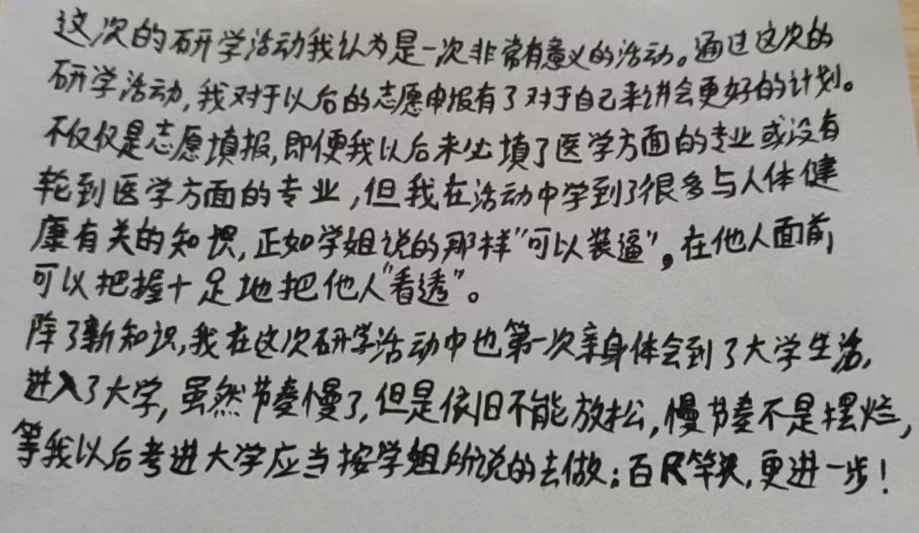 这次的研学活动我认为是一次非常有意义的活动。通过这次的
研学活动,我对于以后的志愿申报有了对于自己来讲会更好的计划。
不仅仅是志愿填报,即便我以后未必填了医学方面的专业或没有
轮到医学方面的专业,但我在活动中学到了很多与人体健
康有关的知识,正如学姐说的那样"可以装逼",在他人面前,
可以把握十足地把他人"看透"。
除了新知识,我在这次研学活动中也第一次亲身体会到了大学生活,
进入了大学,虽然节奏慢了,但是依旧不能放松,慢节奏不是摆烂,
等我以后考进大学应当按学姐所说的去做;百尺竿头,更进一步!